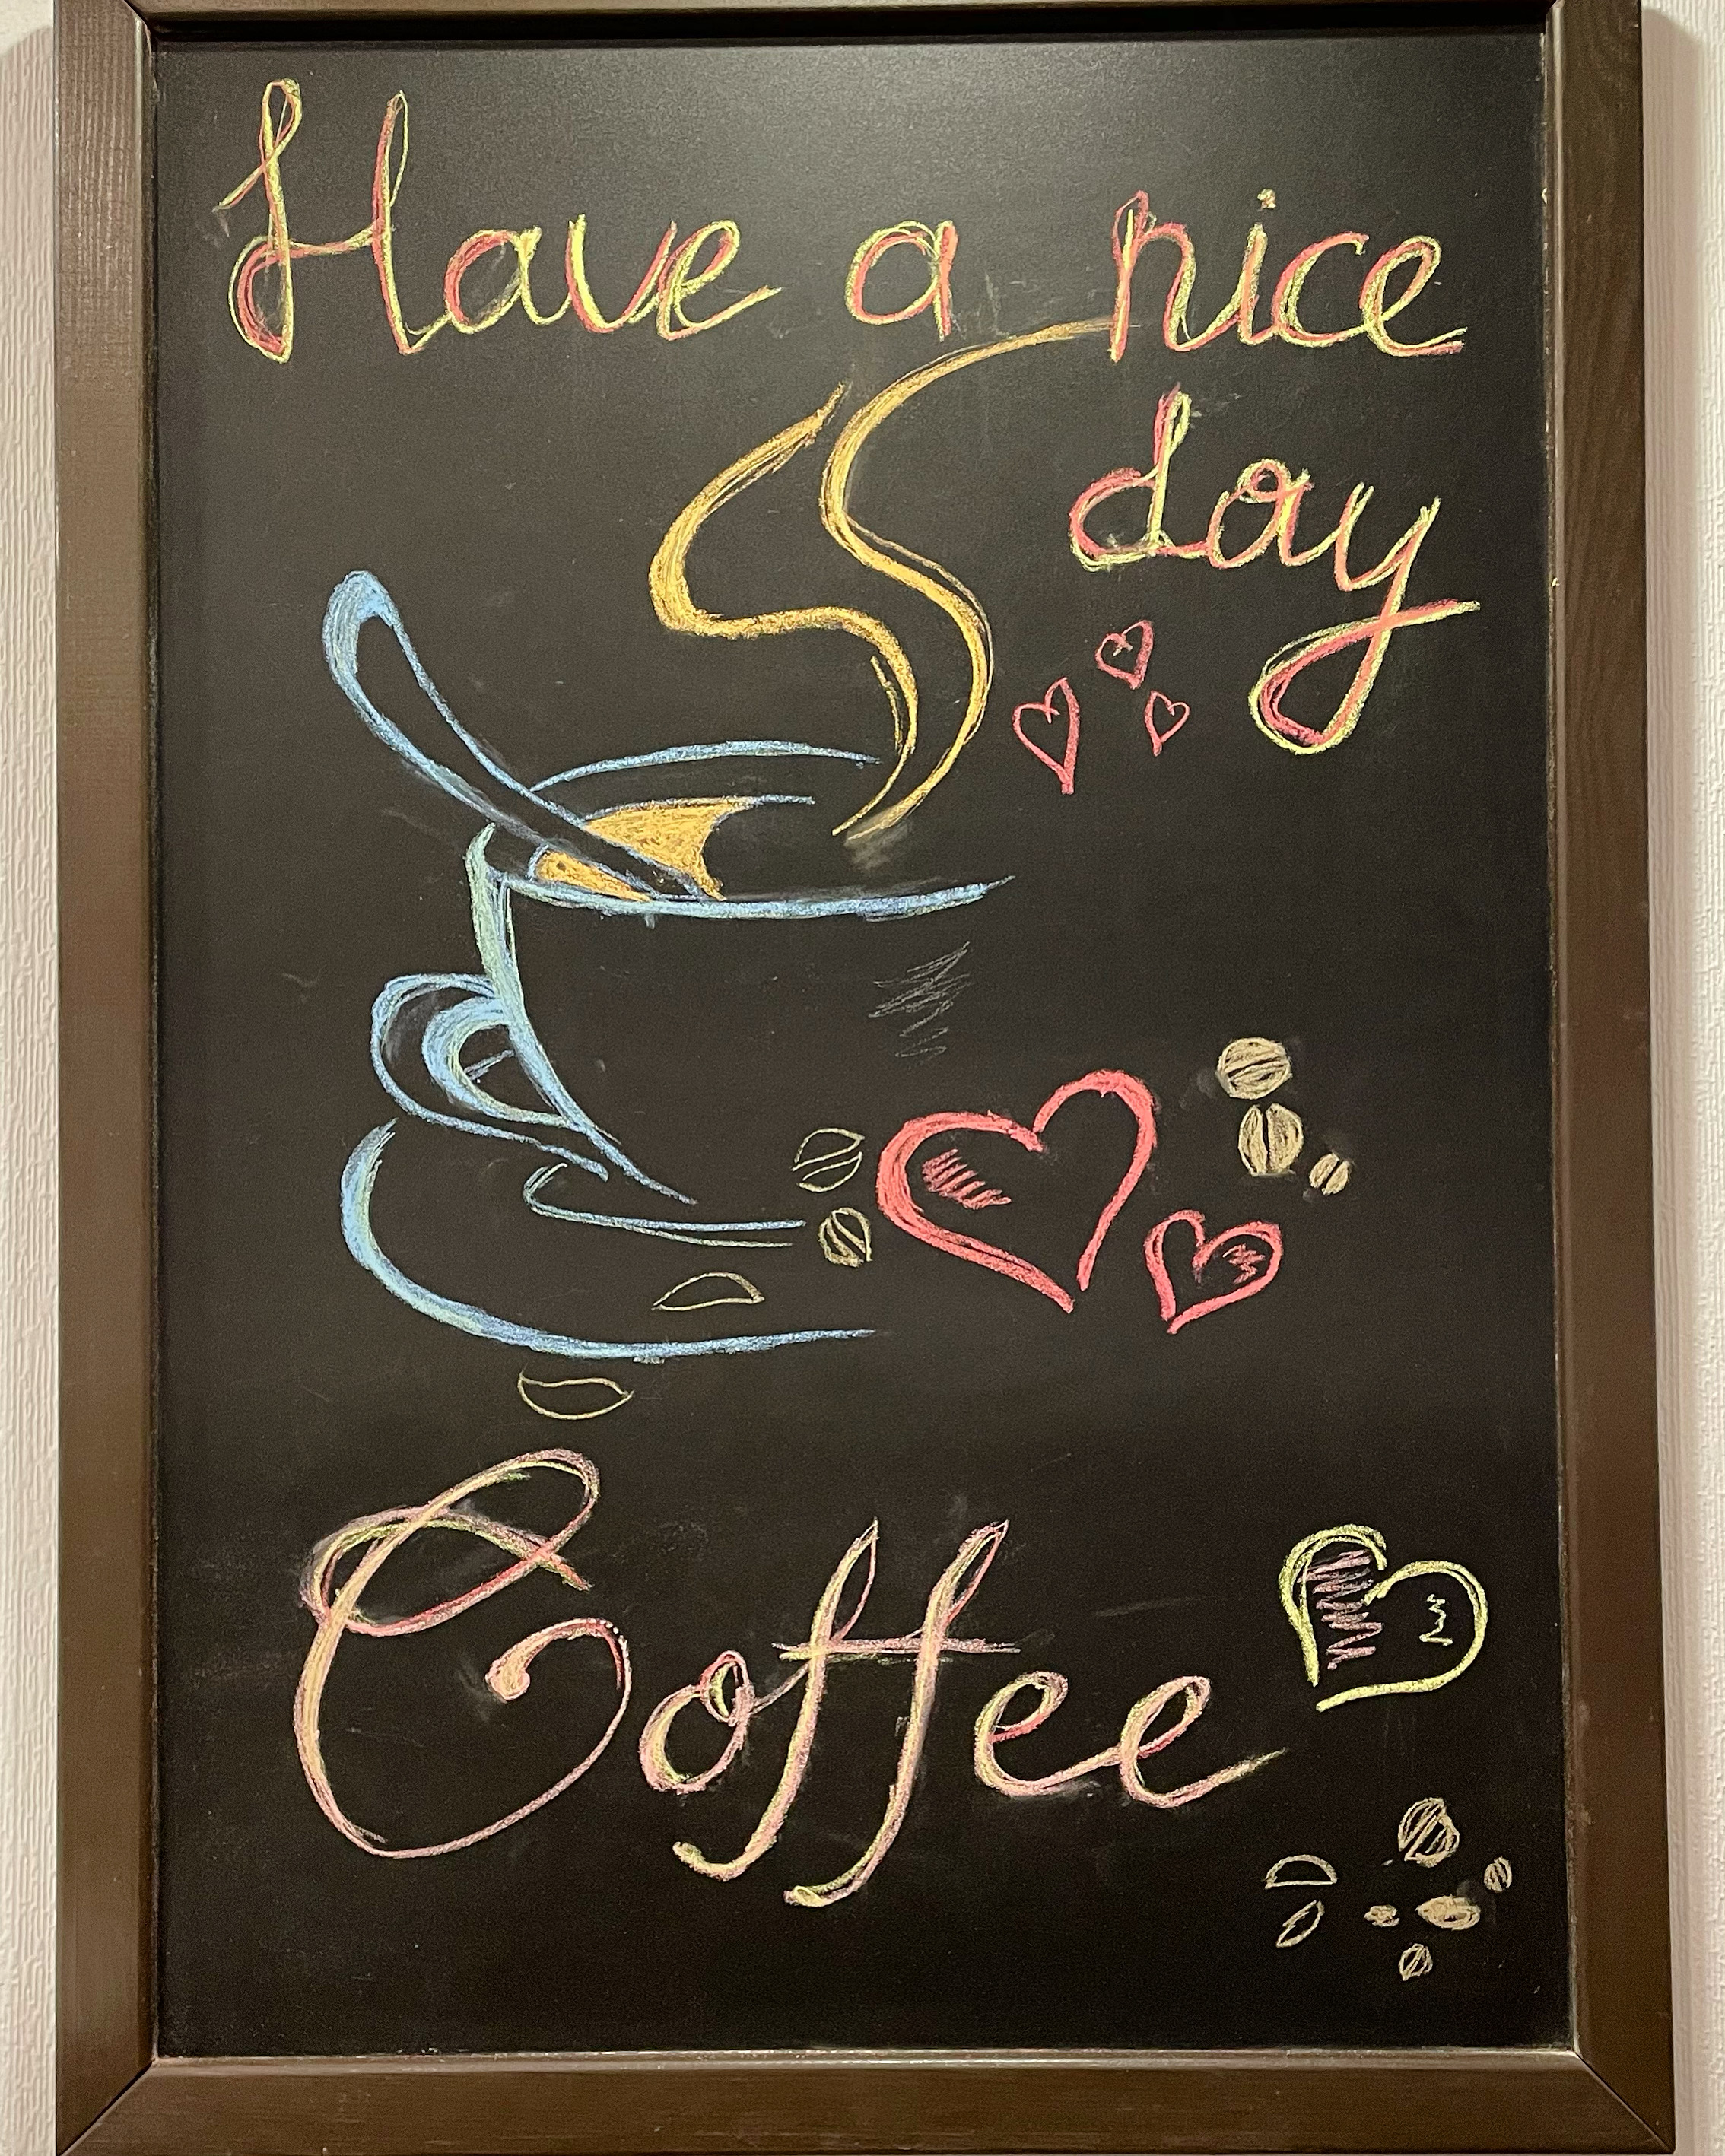 Have a nice
day
Coffee